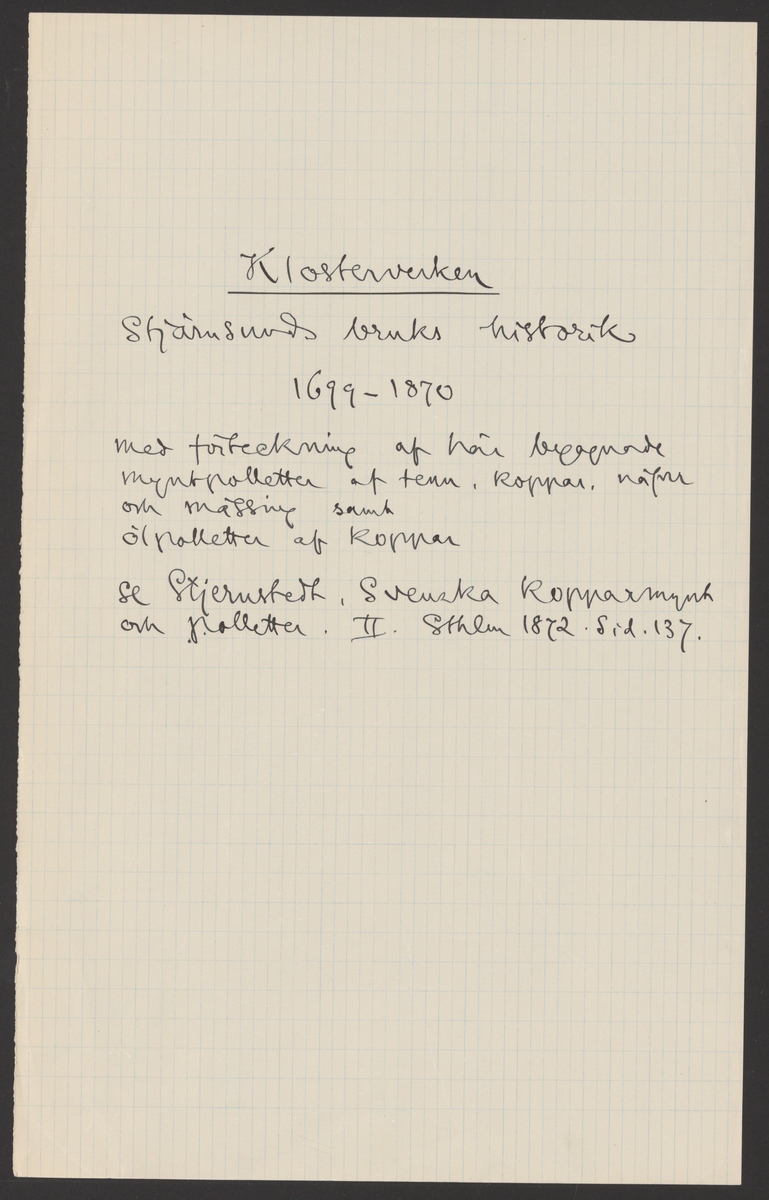 Klosterverken
Stjärnsunds bruks historik
1699-1870
med förteckning af här begagnade
myntpolletter af tenn, koppar, näfver
och mässing samt
ölpolletter af koppar
se Stjernstedt, Svenska kopparmynt
och polletter. II. Sthlm 1872. Sid. 137.